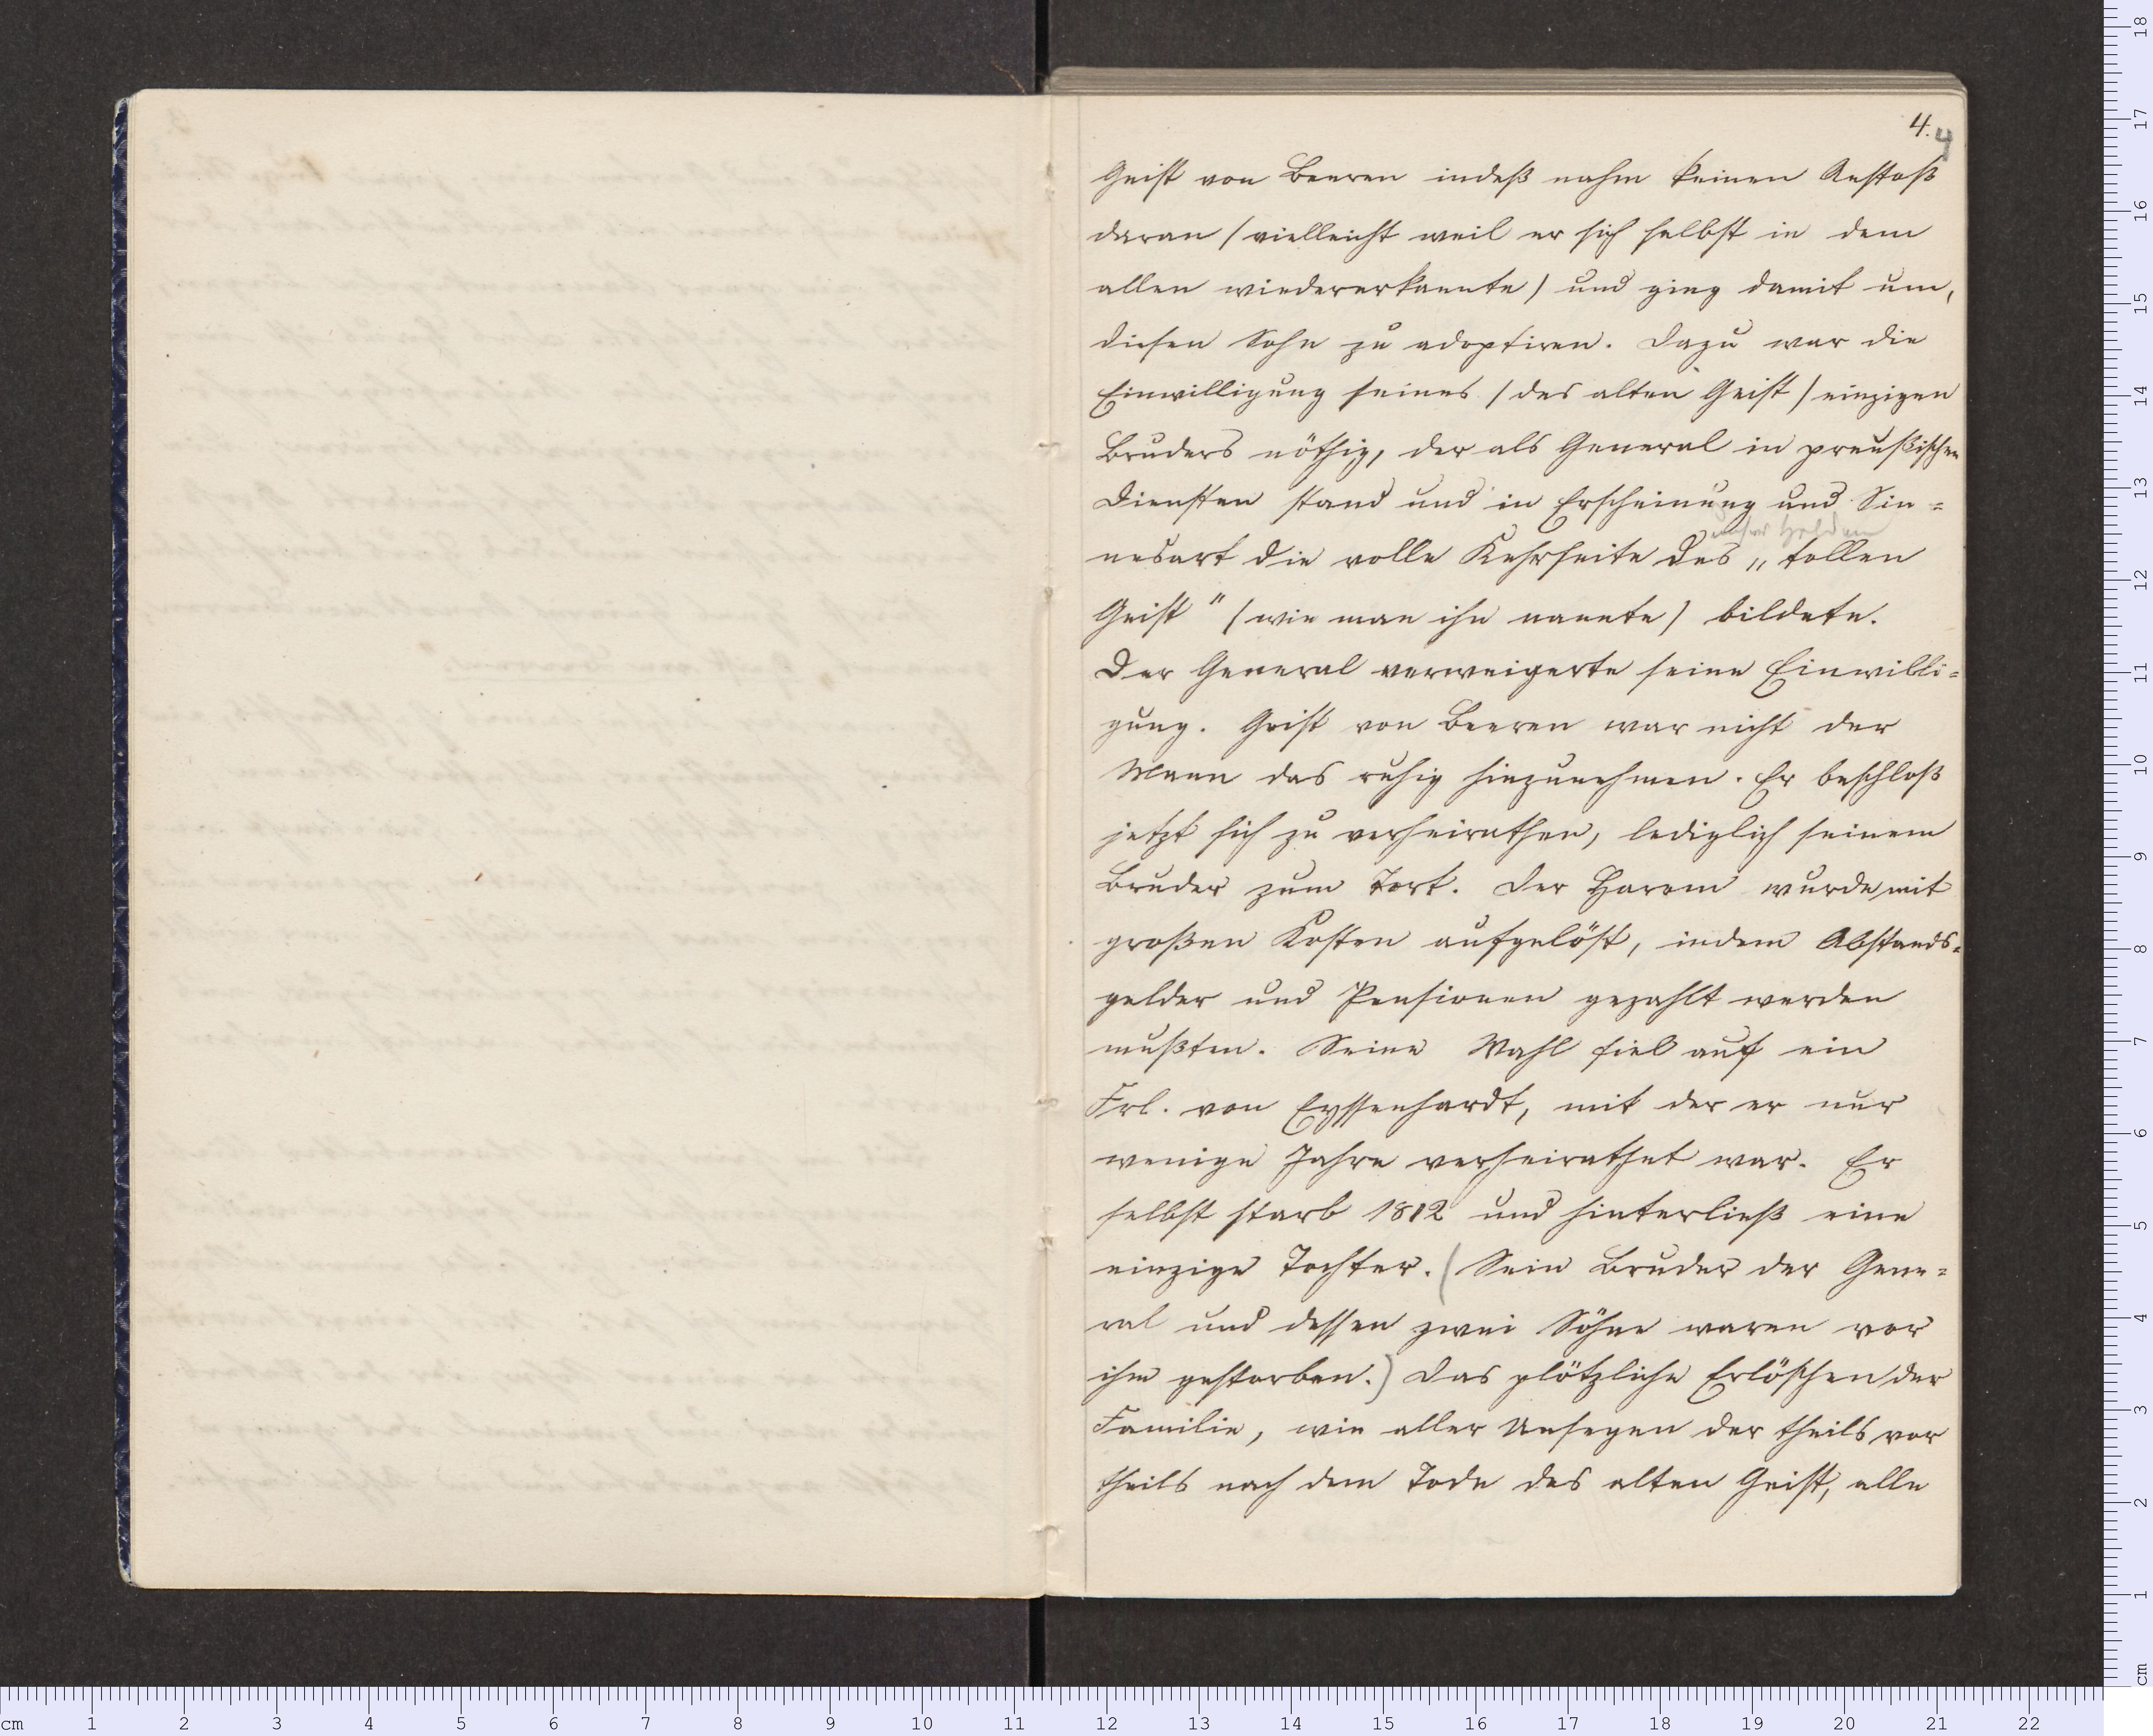 4.
4
Geist von Beeren indeß nahm keinen Anstoß
daran (vielleicht weil er sich selbst in dem
allen wiedererkannte) und ging damit um,
diesen Sohn zu adoptiren. Dazu war die
Einwilligung seines (des alten Geist) einzigen
Bruders nöthig, der als General in preußischen
Diensten stand und in Erscheinung und Sin=
nesart die volle Kehrseite des „tollen
Geist" (wie man ihn nannte) bildete.
Der General verweigerte seine Einwilli=
gung. Geist von Beeren war nicht der
Mann das ruhig hinzunehmen. Er beschloß
jetzt sich zu verheirathen, lediglich seinem
Bruder zum Tort. Der Harem wurde mit
großen Kosten aufgelöst, indem Abstands=
gelder und Pensionen gezahlt werden
mußten. Seine Wahl fiel auf ein
Frl. von Eyssenhardt, mit der er nur
wenige Jahre verheirathet war. Er
selbst starb 1812 und hinterließ eine
einzige Tochter. (Sein Bruder der Gene=
ral und dessen zwei Söhne waren vor
ihm gestorben.) Das plötzliche Erlöschen der
Familie, wie aller Unsegen der theils vor
theils nach dem Tode des alten Geist, alle
cm 1 2 3 4 5 6 7 8 9 10 11 12 13 14 15 16 17 18 19 20 21 22
cm 1 2 3 4 5 6 7 8 9 10 11 12 13 14 15 16 17 18